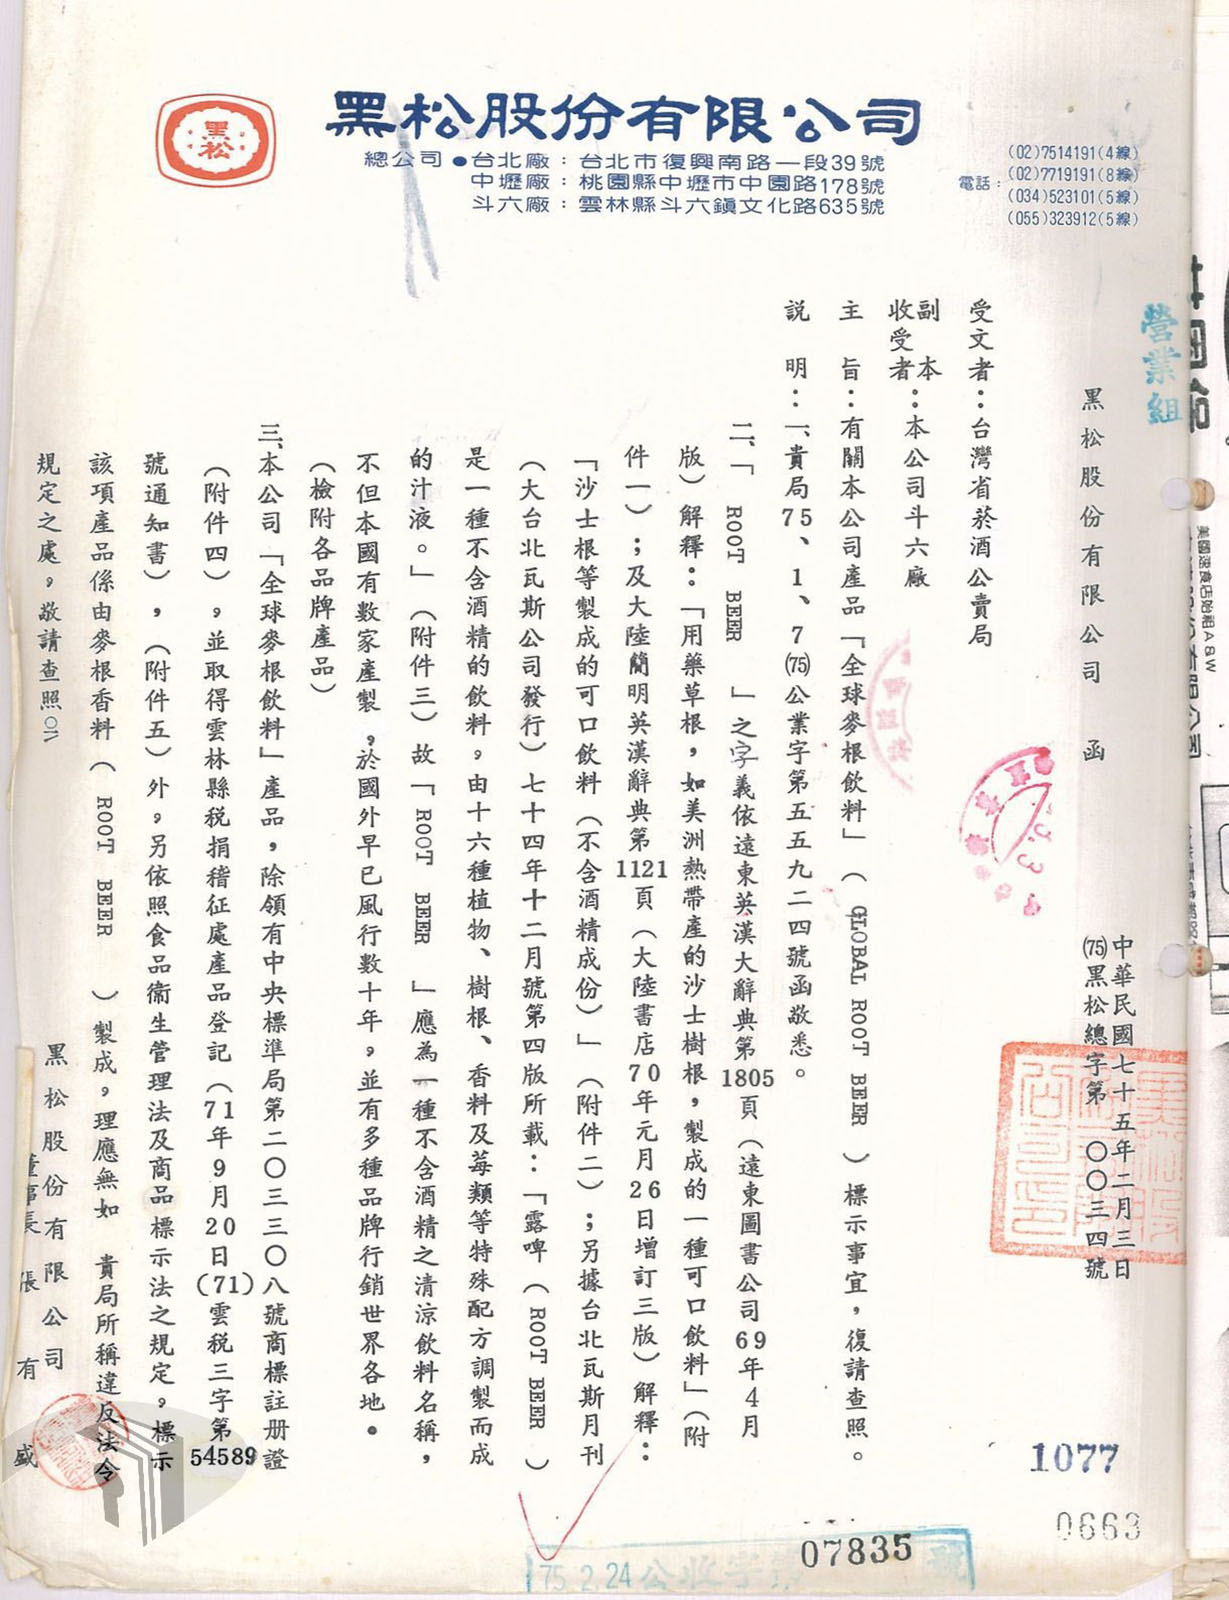 黑松
黑松股份有限公司
總公司●台北廠：台北市復興南路一段39號
中壢廠：桃園縣中壢市中園路178號
斗六廠：雲林縣斗六鎮文化路635號
電話：
(02)7514191(4線)
(02)7719191(8線)
(034)523101(5線)
(055)323912(5線)
營業組
黑松股份有限公司　函
中華民國七十五年二月三日
(75)黑松總字第　〇〇三四號
受文者：台灣省菸酒公賣局
副　本
收受者：本公司斗六廠
主　旨：有關本公司產品「全球麥根飲料」（GLOBAL ROOT BEER）標示事宜，復請查照。
說　明：一、貴局75、1、7(75)公業字第五五九二四號函敬悉。
二、「ROOT BEER」之字義依遠東英漢大辭典第1805頁（遠東圖書公司69年4月
版）解釋：「用藥草根，如美洲熱帶產的沙士樹根，製成的一種可口飲料」（附
件一）；及大陸簡明英漢辭典第1121頁（大陸書店70年元月26日增訂三版）解釋：
「沙士根等製成的可口飲料（不含酒精成份）」（附件二）；另據台北瓦斯月刊
（大台北瓦斯公司發行）七十四年十二月號第四版所載：「露啤（ROOT BEER）
是一種不含酒精的飲料，由十六種植物、樹根、香料及莓類等特殊配方調製而成
的汁液。」（附件三）故「ROOT BEER」應為一種不含酒精之清涼飲料名稱，
不但本國有數家產製，於國外早已風行數十年，並有多種品牌行銷世界各地。
（檢附各品牌產品）
三、本公司「全球麥根飲料」產品，除領有中央標準局第二〇三三〇八號商標註册證
（附件四），並取得雲林縣稅捐稽征處產品登記（71年9月20日(71)雲稅三字第54589
號通知書），（附件五）外，另依照食品衞生管理法及商品標示法之規定，標示
該項產品係由麥根香料（ROOT BEER）製成，理應無如　貴局所稱違反法令
規定之處，敬請查照。
黑松股份有限公司
董事長　張有盛
1077
0663
07835
75.2.24公收字第
號
美國速食店始祖A&W